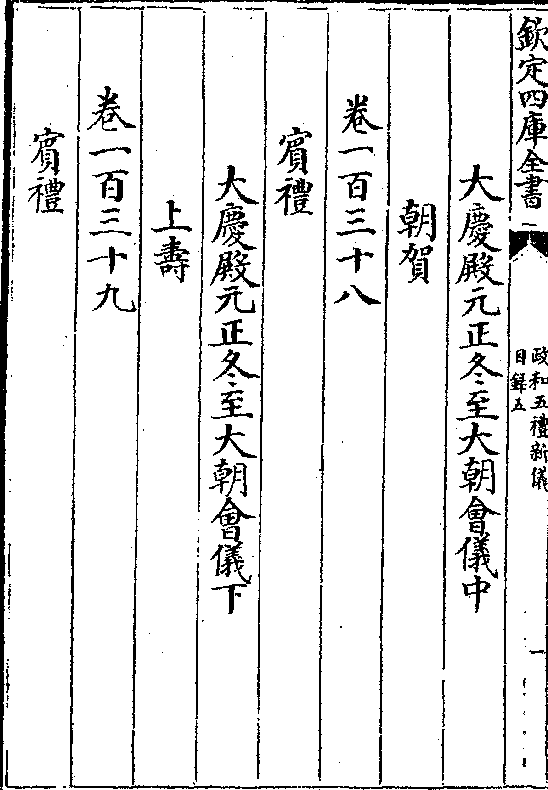 欽定四庫全書
政和五禮新儀
目録五
一
大慶殿元正冬至大朝會儀中
朝賀
卷一百三十八
賓禮
大慶殿元正冬至大朝會儀下
上壽
卷一百三十九
賓禮